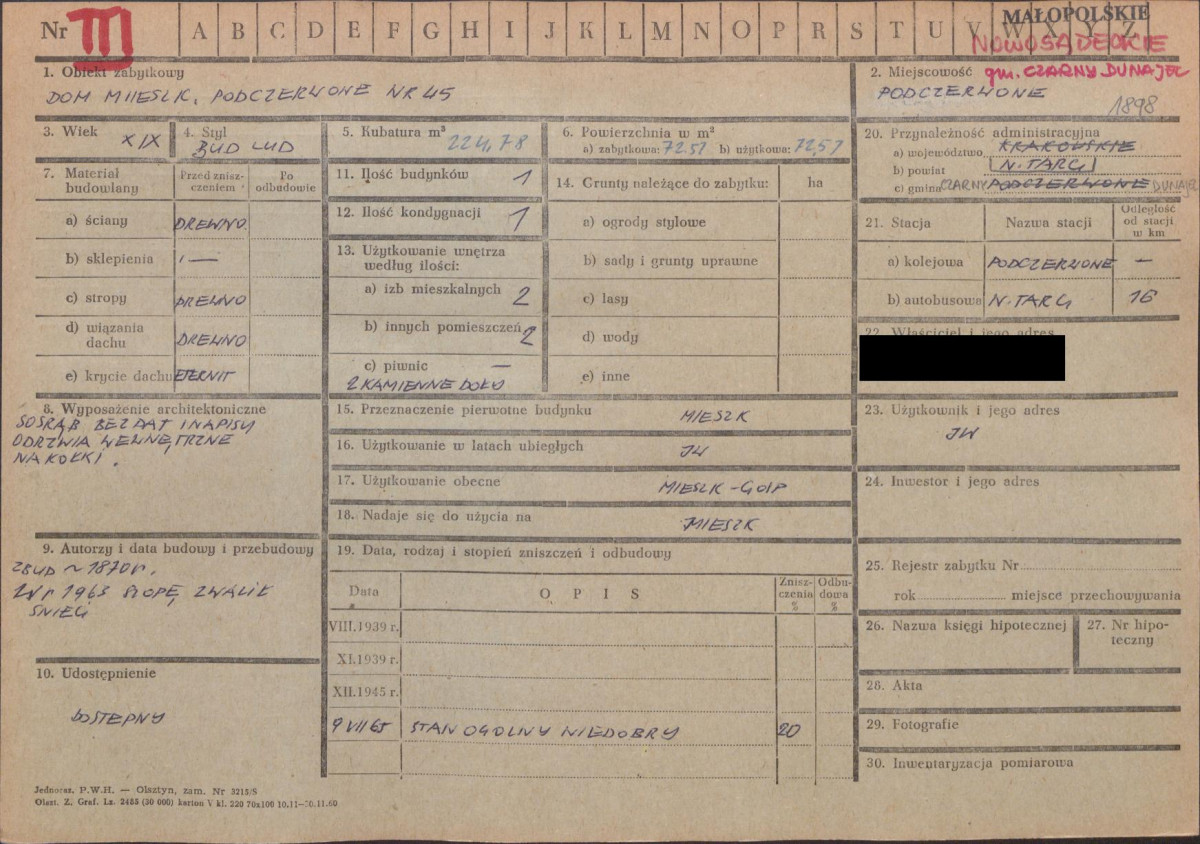 Nr III A B C D E F G H I J K L M N O P R S T U V W X Y Z
MAŁOPOLSKIE
NOWOSĄDECKIE
1. Obiekt zabytkowy
DOM MIESZK. PODCZERWONE NR 45
2. Miejscowość gm. CZARNY DUNAJEC
PODCZERWONE
1898
3. Wiek XIX
4. Styl
BUD LUD
5. Kubatura m³
224,78
6. Powierzchnia w m²
a) zabytkowa: 72.57 b) użytkowa: 72,57
7. Materiał budowlany
Przed zniszczeniem
Po odbudowie
a) ściany DREWNO
b) sklepienia —
c) stropy DREWNO
d) wiązania dachu DREWNO
e) krycie dachu ETERNIT
8. Wyposażenie architektoniczne
SOSRĄB BEZ DAT I NAPISU
ODRZWIA WEWNĘTRZNE
NA KOŁKI.
9. Autorzy i data budowy i przebudowy
ZBUD ~ 1870 r.
W r 1963 SZOPĘ ZWALIŁ
ŚNIEG
10. Udostępnienie
DOSTĘPNY
11. Ilość budynków 1
12. Ilość kondygnacji 1
13. Użytkowanie wnętrza
według ilości:
a) izb mieszkalnych 2
b) innych pomieszczeń 2
c) piwnic —
2 KAMIENNE DOŁY
14. Grunty należące do zabytku: ha
a) ogrody stylowe
b) sady i grunty uprawne
c) lasy
d) wody
e) inne
15. Przeznaczenie pierwotne budynku MIESZK
16. Użytkowanie w latach ubiegłych JW
17. Użytkowanie obecne MIESZK-GOSP
18. Nadaje się do użycia na MIESZK
19. Data, rodzaj i stopień zniszczeń i odbudowy
Data OPIS Zniszczenia % Odbudowa %
VIII.1939 r.
XI.1939 r.
XII.1945 r.
9 VII 65 STAN OGÓLNY NIEDOBRY 20
20. Przynależność administracyjna
a) województwo KRAKOWSKIE
b) powiat N. TARG
c) gmina CZARNY PODCZERWONE DUNAJEC
21. Stacja Nazwa stacji Odległość od stacji w km
a) kolejowa PODCZERWONE —
b) autobusowa N. TARG 16
22. Właściciel i jego adres
23. Użytkownik i jego adres
JW
24. Inwestor i jego adres
25. Rejestr zabytku Nr
rok miejsce przechowywania
26. Nazwa księgi hipotecznej
27. Nr hipoteczny
28. Akta
29. Fotografie
30. Inwentaryzacja pomiarowa
Jednoraz. P.W.H. — Olsztyn, zam. Nr 3215/S
Olszt. Z. Graf. Lz. 2455 (30 000) karton V kl. 220 70x100 10.11—30.11.60